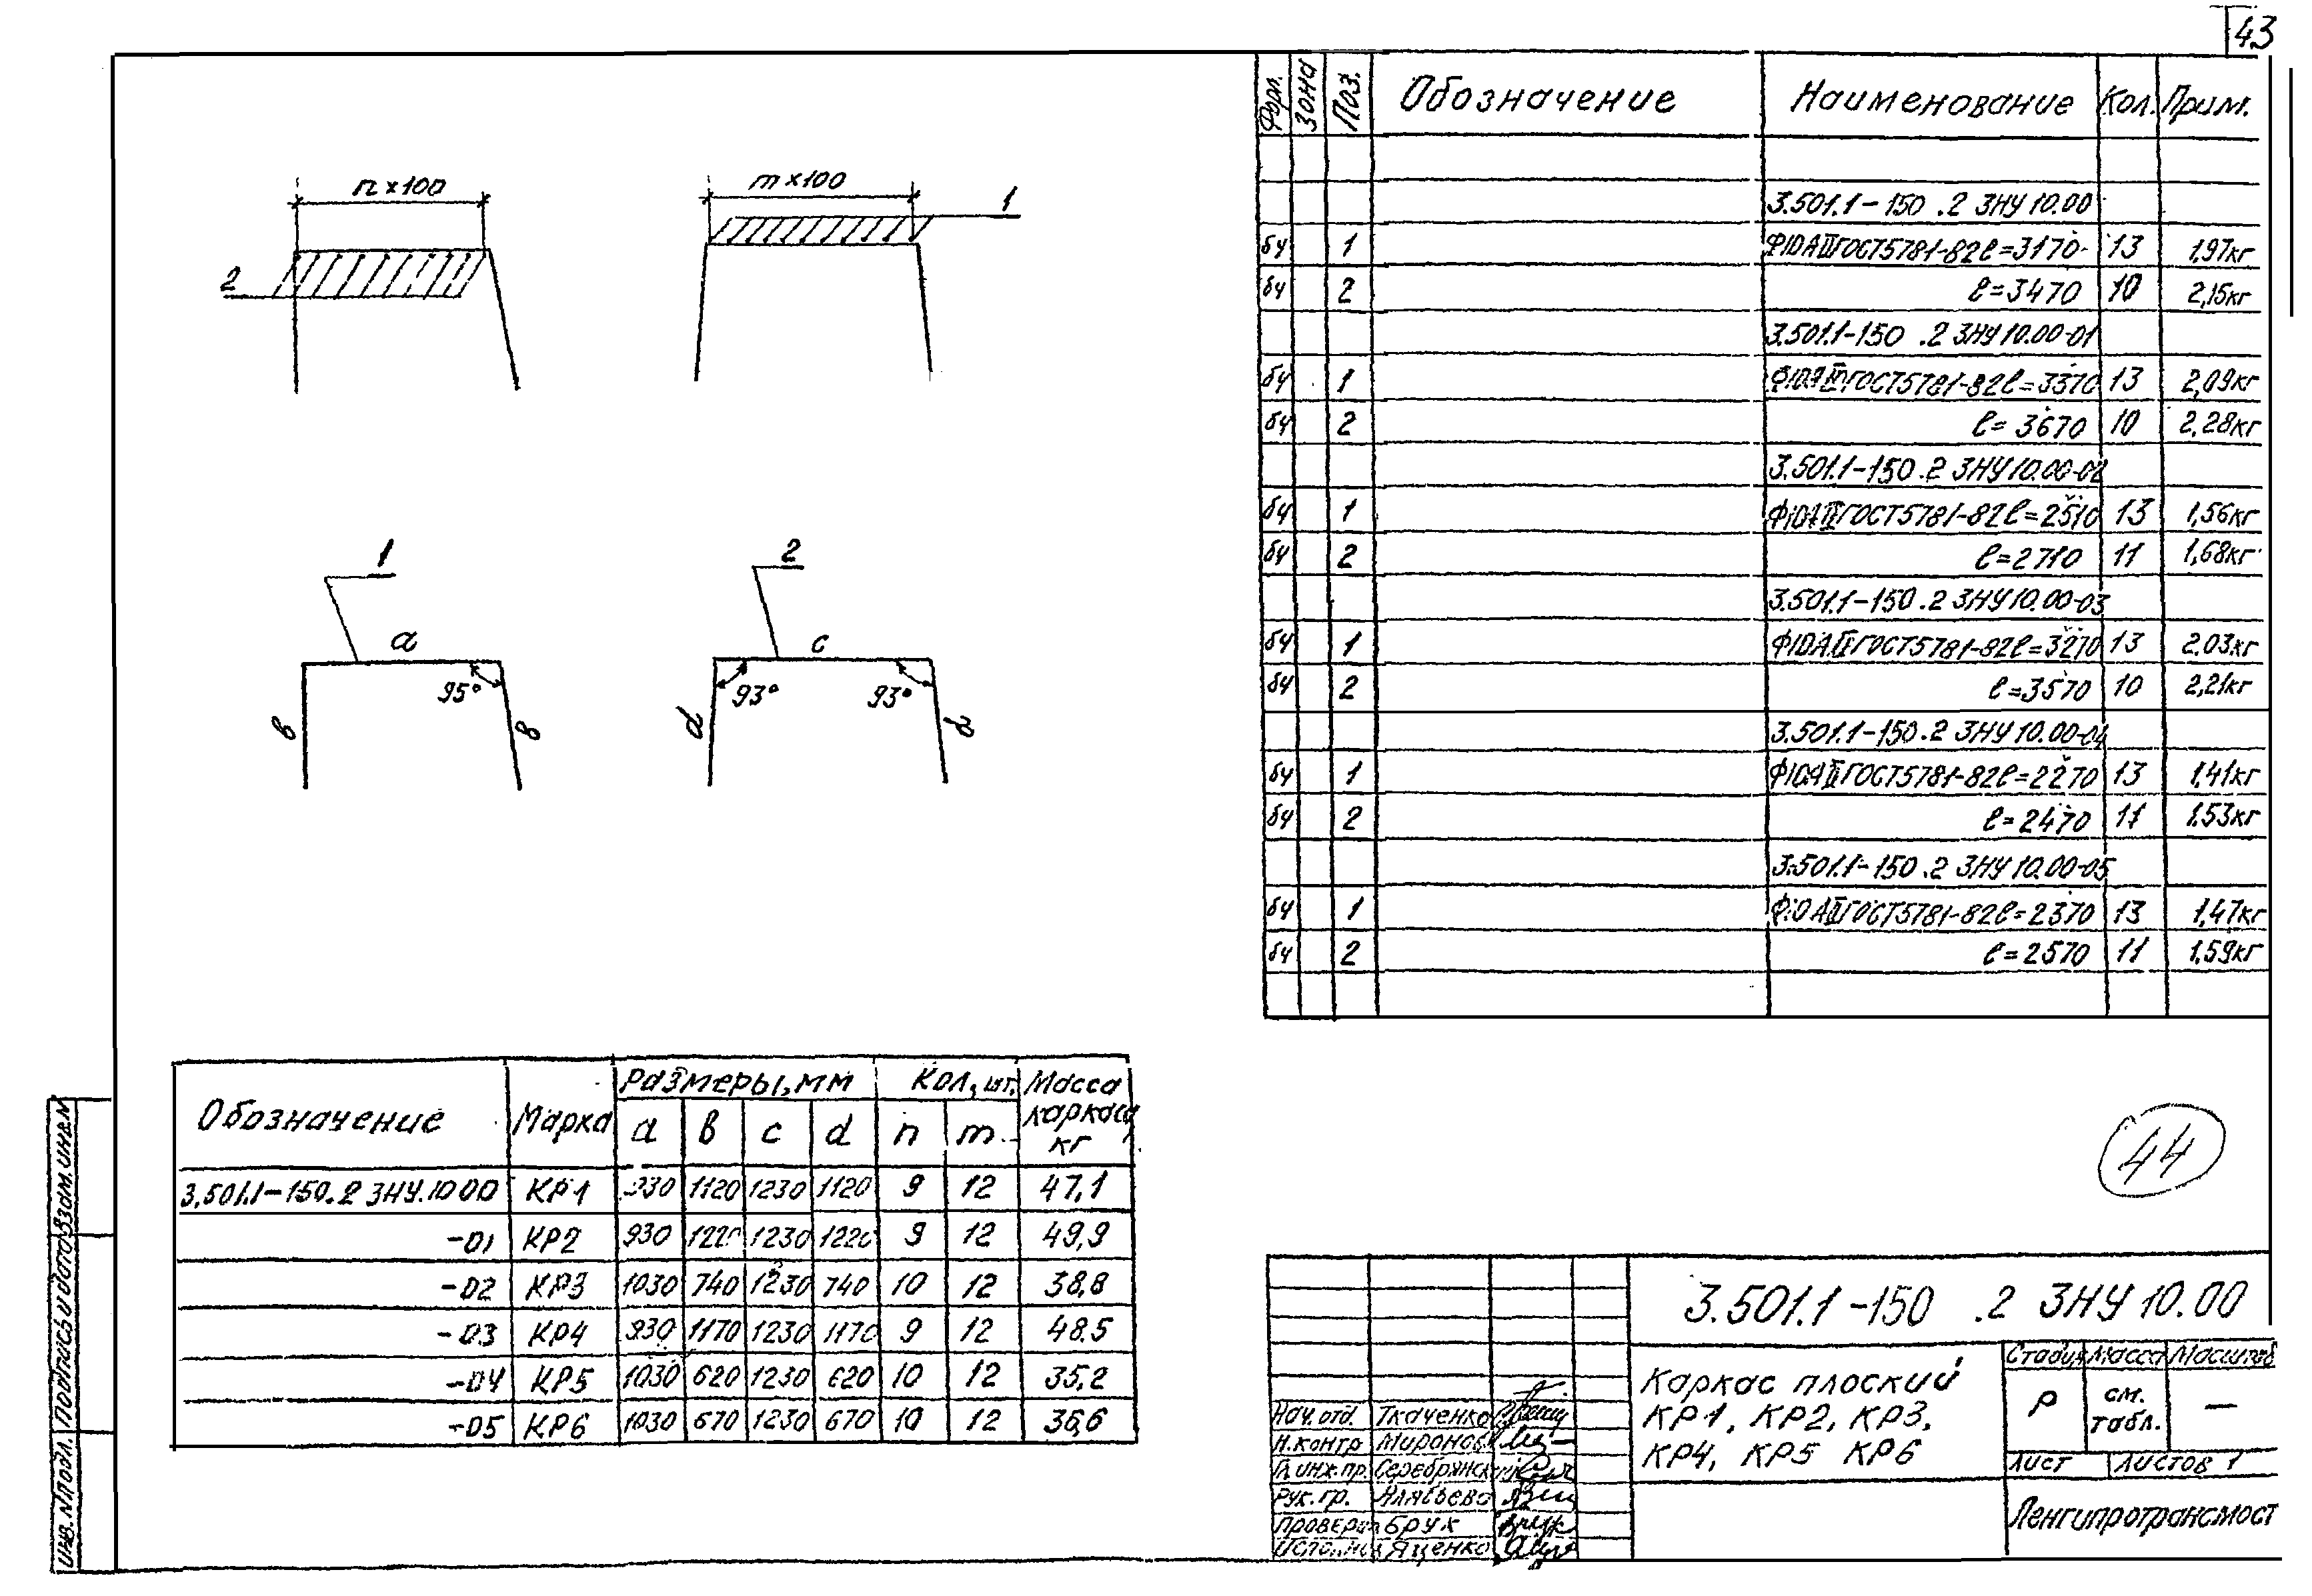 43
n×100
m×100
1
2
1
2
a
c
95°
93°
93°
в
в
d
d
Форм. Зона Поз. Обозначение Наименование Кол. Прим.
3.501.1-150 .2 ЗНУ 10.00
бч 1 Ф10АIIГОСТ5781-82 ℓ=3170 13 1,97кг
бч 2 ℓ=3470 10 2,15кг
3.501.1-150 .2 ЗНУ 10.00-01
бч 1 Ф10АIIГОСТ5781-82 ℓ=3370 13 2,09кг
бч 2 ℓ=3670 10 2,28кг
3.501.1-150.2 ЗНУ 10.00-02
бч 1 Ф10АIIГОСТ5781-82 ℓ=2510 13 1,56кг
бч 2 ℓ=2710 11 1,68кг
3.501.1-150.2 ЗНУ 10.00-03
бч 1 Ф10АIIГОСТ5781-82 ℓ=3270 13 2.03кг
бч 2 ℓ=3570 10 2,21кг
3.501.1-150.2 ЗНУ 10.00-04
бч 1 Ф10АIIГОСТ5781-82 ℓ=2270 13 1,41кг
бч 2 ℓ=2470 11 1.53кг
3.501.1-150.2 ЗНУ 10.00-05
бч 1 Ф10АIIГОСТ5781-82 ℓ=2370 13 1,47кг
бч 2 ℓ=2570 11 1,59кг
Обозначение Марка Размеры, мм Кол, шт. Масса каркаса, кг
a в c d n m
3.501.1-150.2 ЗНУ.10 00 КР1 930 1120 1230 1120 9 12 47,1
-01 КР2 930 1220 1230 1220 9 12 49,9
-02 КР3 1030 740 1230 740 10 12 38,8
-03 КР4 930 1170 1230 1170 9 12 48.5
-04 КР5 1030 620 1230 620 10 12 35,2
-05 КР6 1030 670 1230 670 10 12 36,6
44
3.501.1-150 .2 ЗНУ 10.00
Каркас плоский
КР1, КР2, КР3,
КР4, КР5 КР6
Стадия Масса Масштаб
Р см. табл. —
Лист Листов 1
Ленгипротрансмост
Нач.отд. Ткаченко
Н.контр Миронов
Гл.инж.пр. Серебрянский
Рук.гр. Алябьева
Проверил Брук
Исполнил Яценко
Инв. №подл. Подпись и дата Взам.инв.№